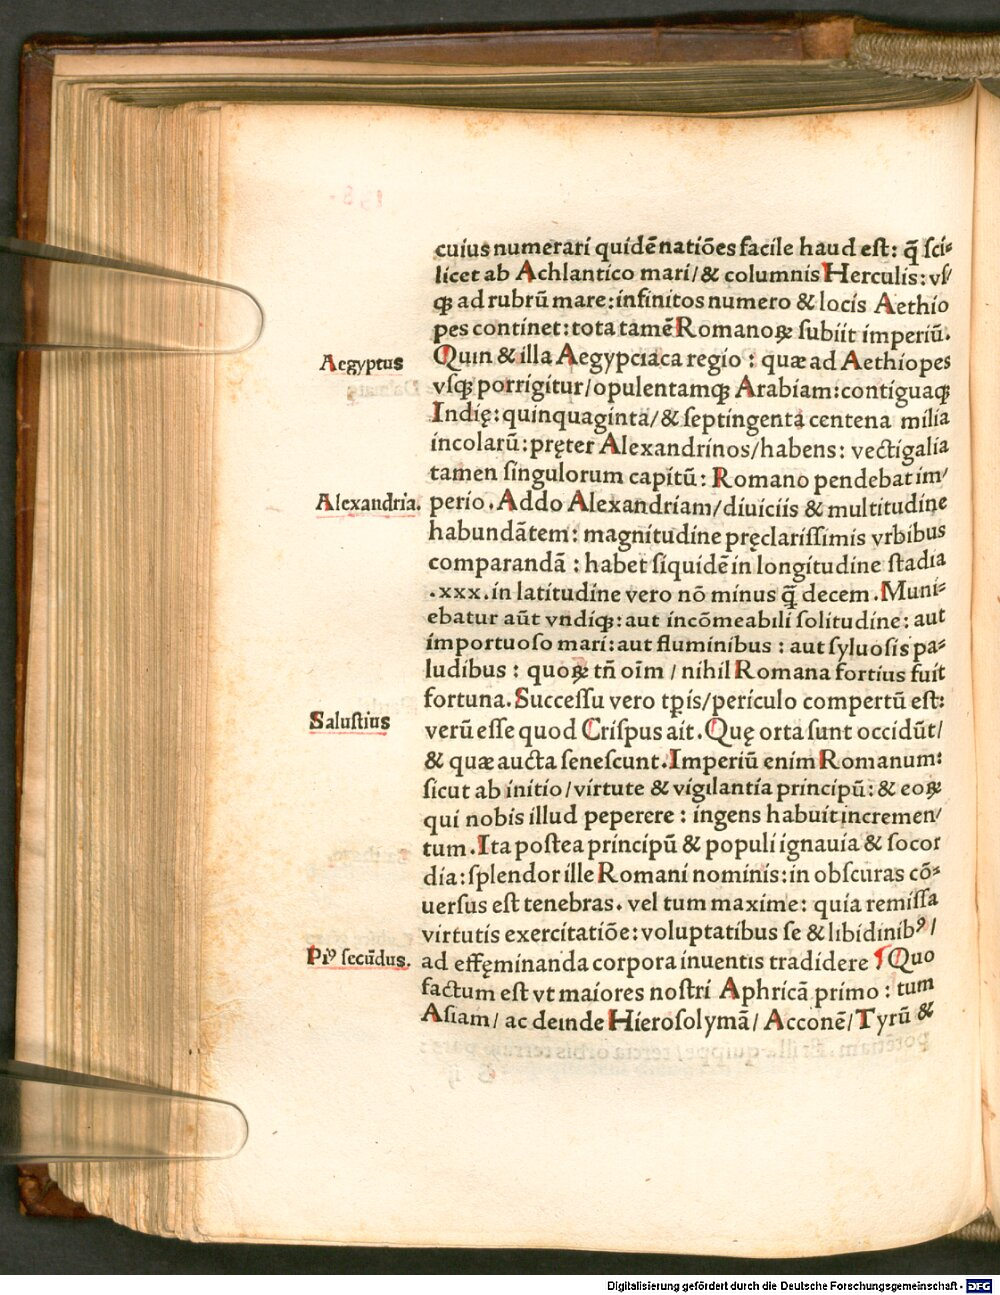 cuius numerari quidē natiōes facile haud est: q̄ sci⸗
licet ab Achlantico mari/ & columnis Herculis: vs/
qꝫ ad rubrū mare: infinitos numero & locis Aethio
pes continet: tota tamē Romanoꝝ subiit imperiū.
Aegyptus
Quin & illa Aegypciaca regio: quæ ad Aethiopes
vsqꝫ porrigitur/ opulentamqꝫ Arabiam: contiguaqꝫ
Indię: quinquaginta/ & septingenta centena milia
incolarū: pręter Alexandrinos/ habens: vectigalia
tamen singulorum capitū: Romano pendebat im/
Alexandria.
perio. Addo Alexandriam/ diuiciis & multitudine
habundātem: magnitudine pręclarissimis vrbibus
comparandā: habet siquidē in longitudine stadia
.xxx. in latitudine vero nō minus q̄ decem. Muni⸗
ebatur aūt vndiqꝫ: aut incōmeabili solitudine: aut
importuoso mari: aut fluminibus: aut syluosis pa⸗
ludibus: quoꝝ tn̄ oīm/ nihil Romana fortius fuit
fortuna. Successu vero tꝑis/ periculo compertū est:
Salustius
verū esse quod Crispus ait. Quę orta sunt occidūt/
& quæ aucta senescunt. Imperiū enim Romanum:
sicut ab initio/ virtute & vigilantia principū: & eoꝝ
qui nobis illud peperere: ingens habuit incremen/
tum. Ita postea principū & populi ignauia & socor
dia: splendor ille Romani nominis: in obscuras cō⸗
uersus est tenebras. vel tum maxime: quia remissa
virtutis exercitatiōe: voluptatibus se & libidinibꝰ/
Piꝰ secūdus.
ad effęminanda corpora inuentis tradidere ¶ Quo
factum est vt maiores nostri Aphricā primo: tum
Asiam/ ac deinde Hierosolymā/ Acconē/ Tyrū &
Digitalisierung gefördert durch die Deutsche Forschungsgemeinschaft - DFG